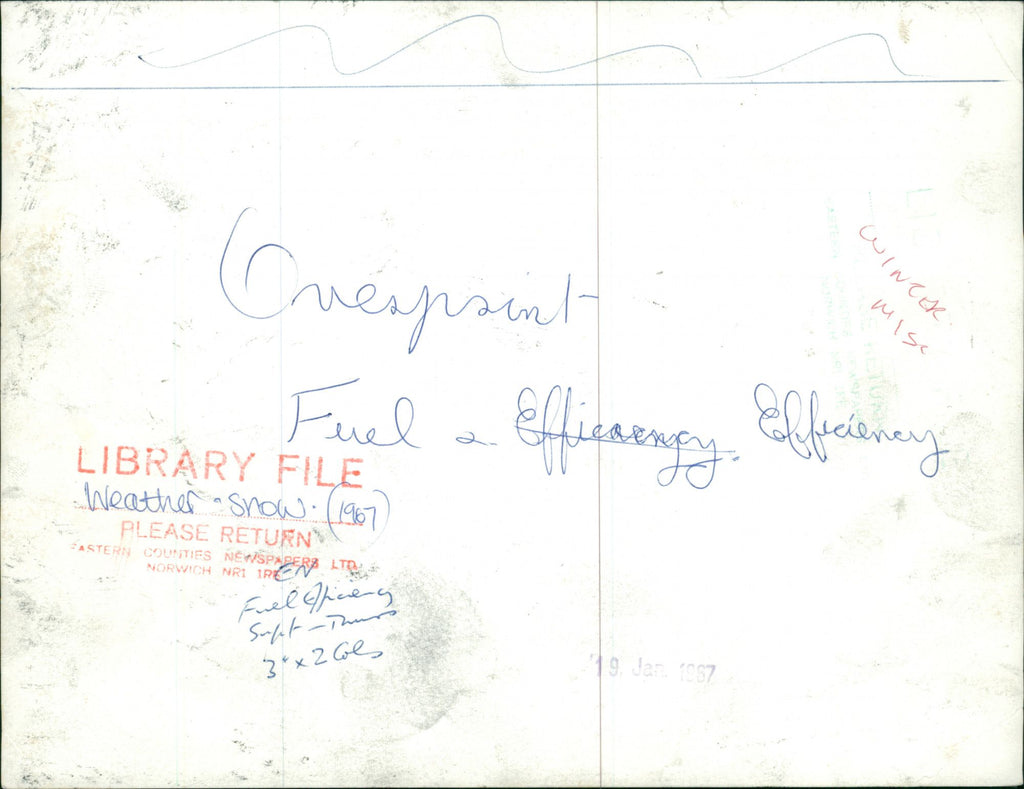 Overprint
WINCER
MISC
Fuel &
Efficiency. Efficiency
LIBRARY FILE
Weather - Snow. (1967)
PLEASE RETURN
EASTERN COUNTIES NEWSPAPERS LTD.
NORWICH NR1 1RE
EN
Fuel Efficiency
Supt - Thurs
3" x 2 Cols
19. Jan. 1967